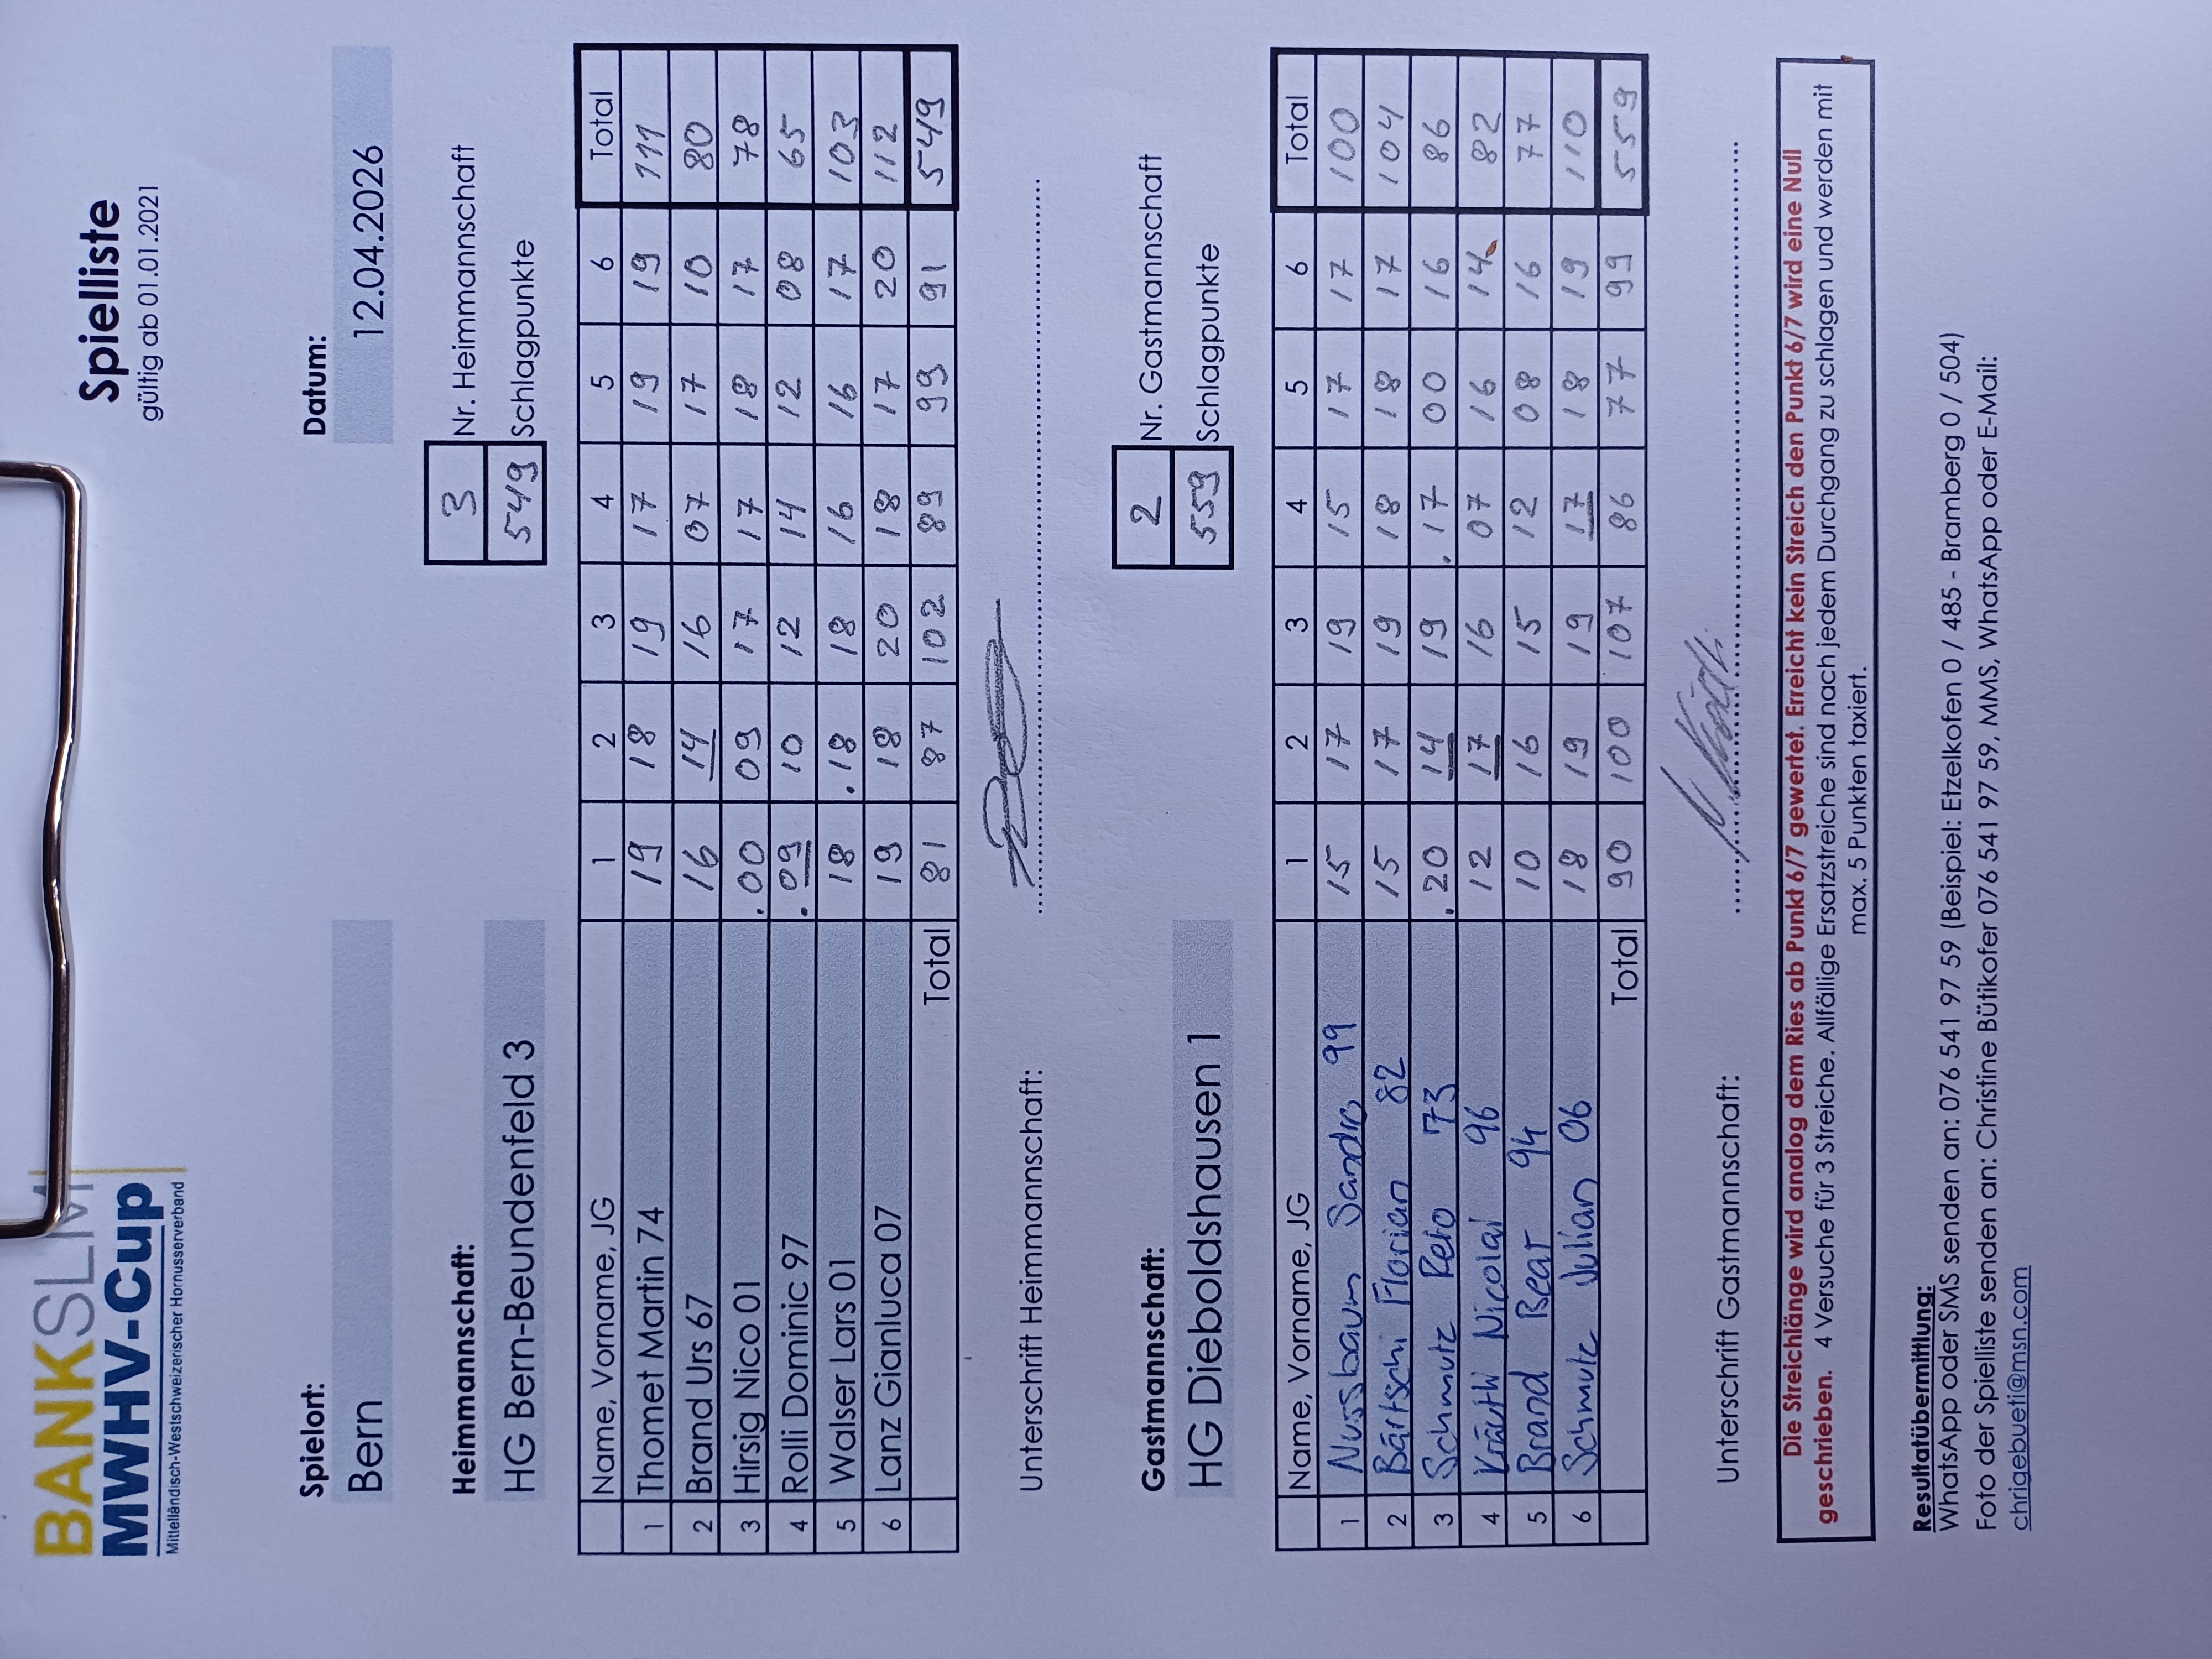 BANKSLM
MWHV-Cup
Mittelländisch-Westschweizerischer Hornusserverband
Spielliste
gültig ab 01.01.2021
Spielort: Datum:
Bern 12.04.2026
Heimmannschaft: 3 Nr. Heimmannschaft
HG Bern-Beundenfeld 3 549 Schlagpunkte
Name, Vorname, JG 1 2 3 4 5 6 Total
1 Thomet Martin 74 19 18 19 17 19 19 111
2 Brand Urs 67 16 14 16 07 17 10 80
3 Hirsig Nico 01 .00 09 17 17 18 17 78
4 Rolli Dominic 97 .09 10 12 14 12 08 65
5 Walser Lars 01 18 .18 18 16 16 17 103
6 Lanz Gianluca 07 19 18 20 18 17 20 112
Total 81 87 102 89 99 91 549
Unterschrift Heimmannschaft:
Gastmannschaft: 2 Nr. Gastmannschaft
HG Dieboldshausen 1 559 Schlagpunkte
Name, Vorname, JG 1 2 3 4 5 6 Total
1 Nussbaum Sandro 99 15 17 19 15 17 17 100
2 Bärtschi Florian 82 15 17 19 18 18 17 104
3 Schmutz Reto 73 .20 14 19 .17 00 16 86
4 Kräuthi Nicolai 96 12 17 16 07 16 14 82
5 Brand Beat 94 10 16 15 12 08 16 77
6 Schmutz Julian 06 18 19 19 17 18 19 110
Total 90 100 107 86 77 99 559
Unterschrift Gastmannschaft:
Die Streichlänge wird analog dem Ries ab Punkt 6/7 gewertet. Erreicht kein Streich den Punkt 6/7 wird eine Null
geschrieben. 4 Versuche für 3 Streiche. Allfällige Ersatzstreiche sind nach jedem Durchgang zu schlagen und werden mit
max. 5 Punkten taxiert.
Resultatübermittlung:
WhatsApp oder SMS senden an: 076 541 97 59 (Beispiel: Etzelkofen 0 / 485 - Bramberg 0 / 504)
Foto der Spielliste senden an: Christine Bütikofer 076 541 97 59, MMS, WhatsApp oder E-Mail:
chrigebueti@msn.com